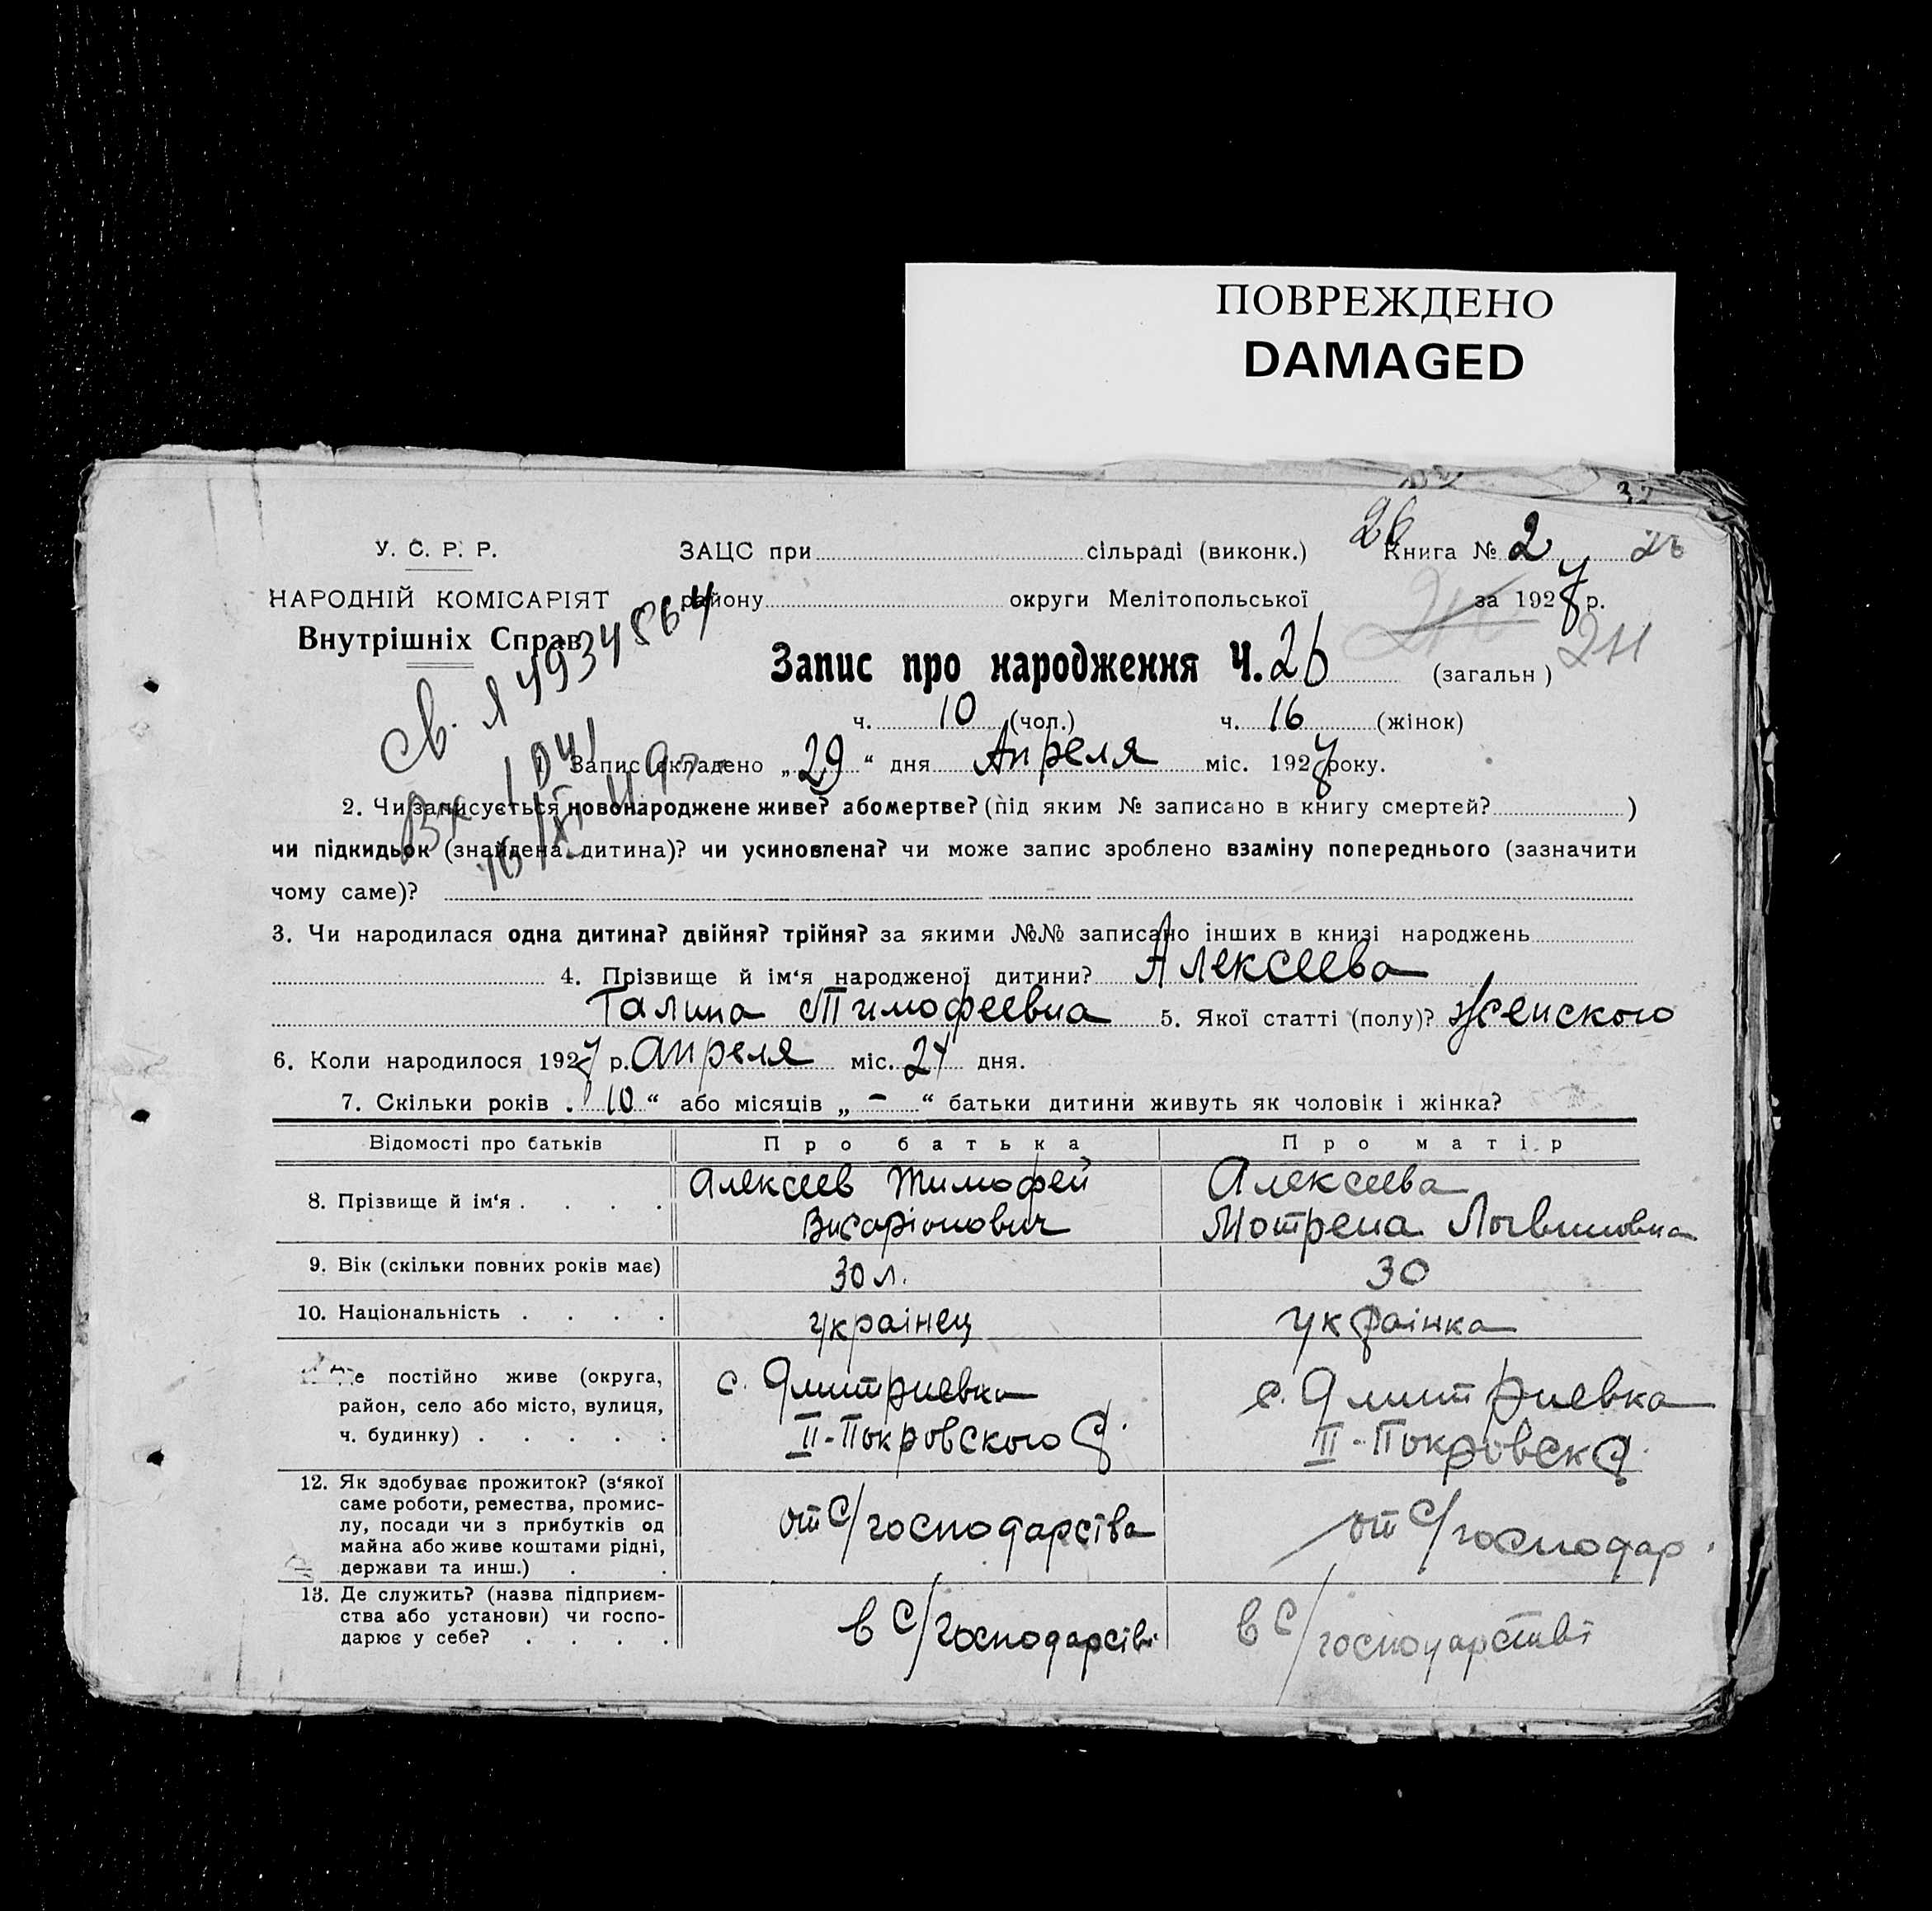 ПОВРЕЖДЕНО
DAMAGED
32
У. С. Р. Р.
ЗАЦС при сільраді (виконк.)
26
Книга № 2
26
НАРОДНІЙ КОМІСАРІЯТ
району округи Мелітопольської
за 1927 р.
Внутрішніх Справ
Запис про народження Ч. 26 (загальн)
ч. 10 (чол.) ч. 16 (жінок)
1. Запис складено „29“ дня Апреля міс. 1927 року.
2. Чи записується новонароджене живе? або мертве? (під яким № записано в книгу смертей? )
чи підкидьок (знайдена дитина)? чи усиновлена? чи може запис зроблено взаміну попереднього (зазначити
чому саме)?
3. Чи народилася одна дитина? двійня? трійня? за якими №№ записано інших в книзі народжень
4. Прізвище й ім‘я народженої дитини? Алексеева
Галина Тимофеевна 5. Якої статті (полу)? женского
6. Коли народилося 1927 р. апреля міс. 24 дня.
7. Скільки років „10“ або місяців „ - “ батьки дитини живуть як чоловік і жінка?
Відомості про батьків Про батька Про матір
8. Прізвище й ім‘я . . . . Алексеев Тимофей Алексеева
Висаріонович Мотрена Логвиновна
9. Вік (скільки повних років має) 30 л. 30
10. Національність . . . . українец українка
постійно живе (округа, с. Дмитриевка с. Дмитриевка
район, село або місто, вулиця,
ч. будинку) . . . . . II-Покровского II-Покровск
12. Як здобуває прожиток? (з‘якої
саме роботи, ремества, промис-
лу, посади чи з прибутків од от с/господарства от с/господар.
майна або живе коштами рідні,
держави та инш.) . .
13. Де служить? (назва підприєм-
ства або установи) чи госпо- в с/господарстві в с/господарстві
дарює у себе? . . . .